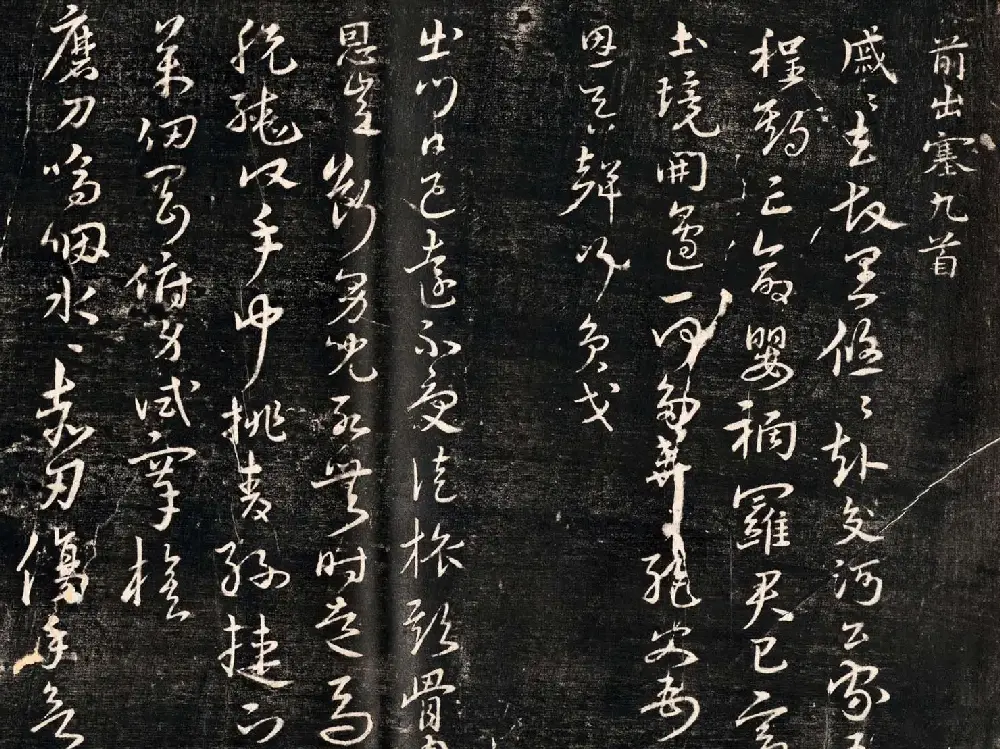 前出塞九首
戚〻去故里悠〻赴交河公家
程期亡命嬰禍羅君已富
土境開邊一何多棄絕父母
恩吞聲行負戈
出門日已遠不受徒旅欺骨
恩豈斷男兒死無時走馬
脫轡頭手中挑青絲捷下
萬仞岡俯身試搴旗
磨刀嗚咽水〻赤刃傷手欲